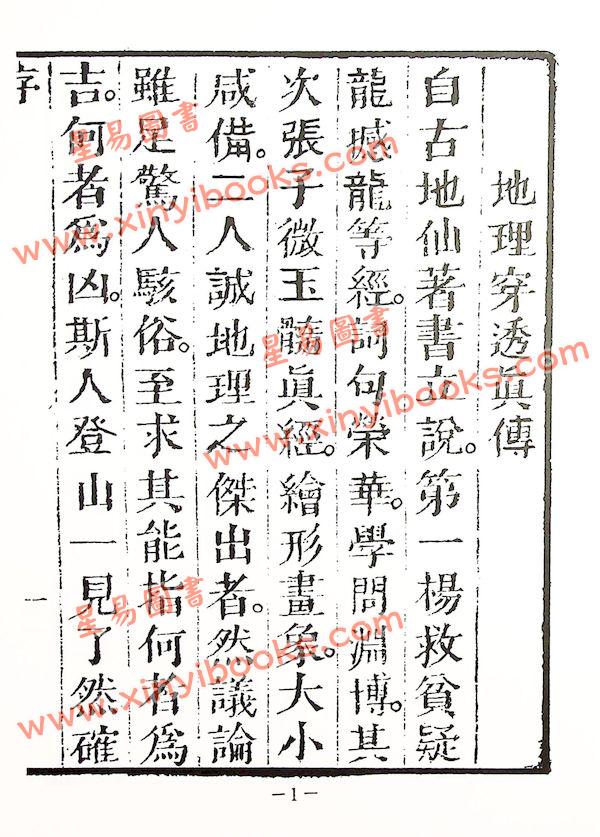 地理穿透眞傳
自古地仙著書立說。第一楊救貧疑
龍撼龍等經。詞句榮華。學問淵博。其
次張子微玉髓眞經。繪形畫象。大小
咸備。二人誠地理之傑出者。然議論
雖足驚人駭俗。至求其能指何者爲
吉。何者爲凶。斯人登山一見了然確
序
一
星易圖書
www.xinyibooks.com
星易圖書
www.xinyibooks.com
星易圖書
www.xinyibooks.com
-1-